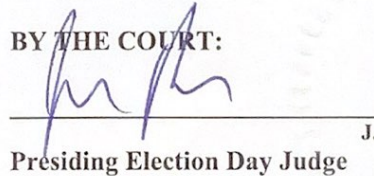 BY THE COURT:
J.
Presiding Election Day Judge